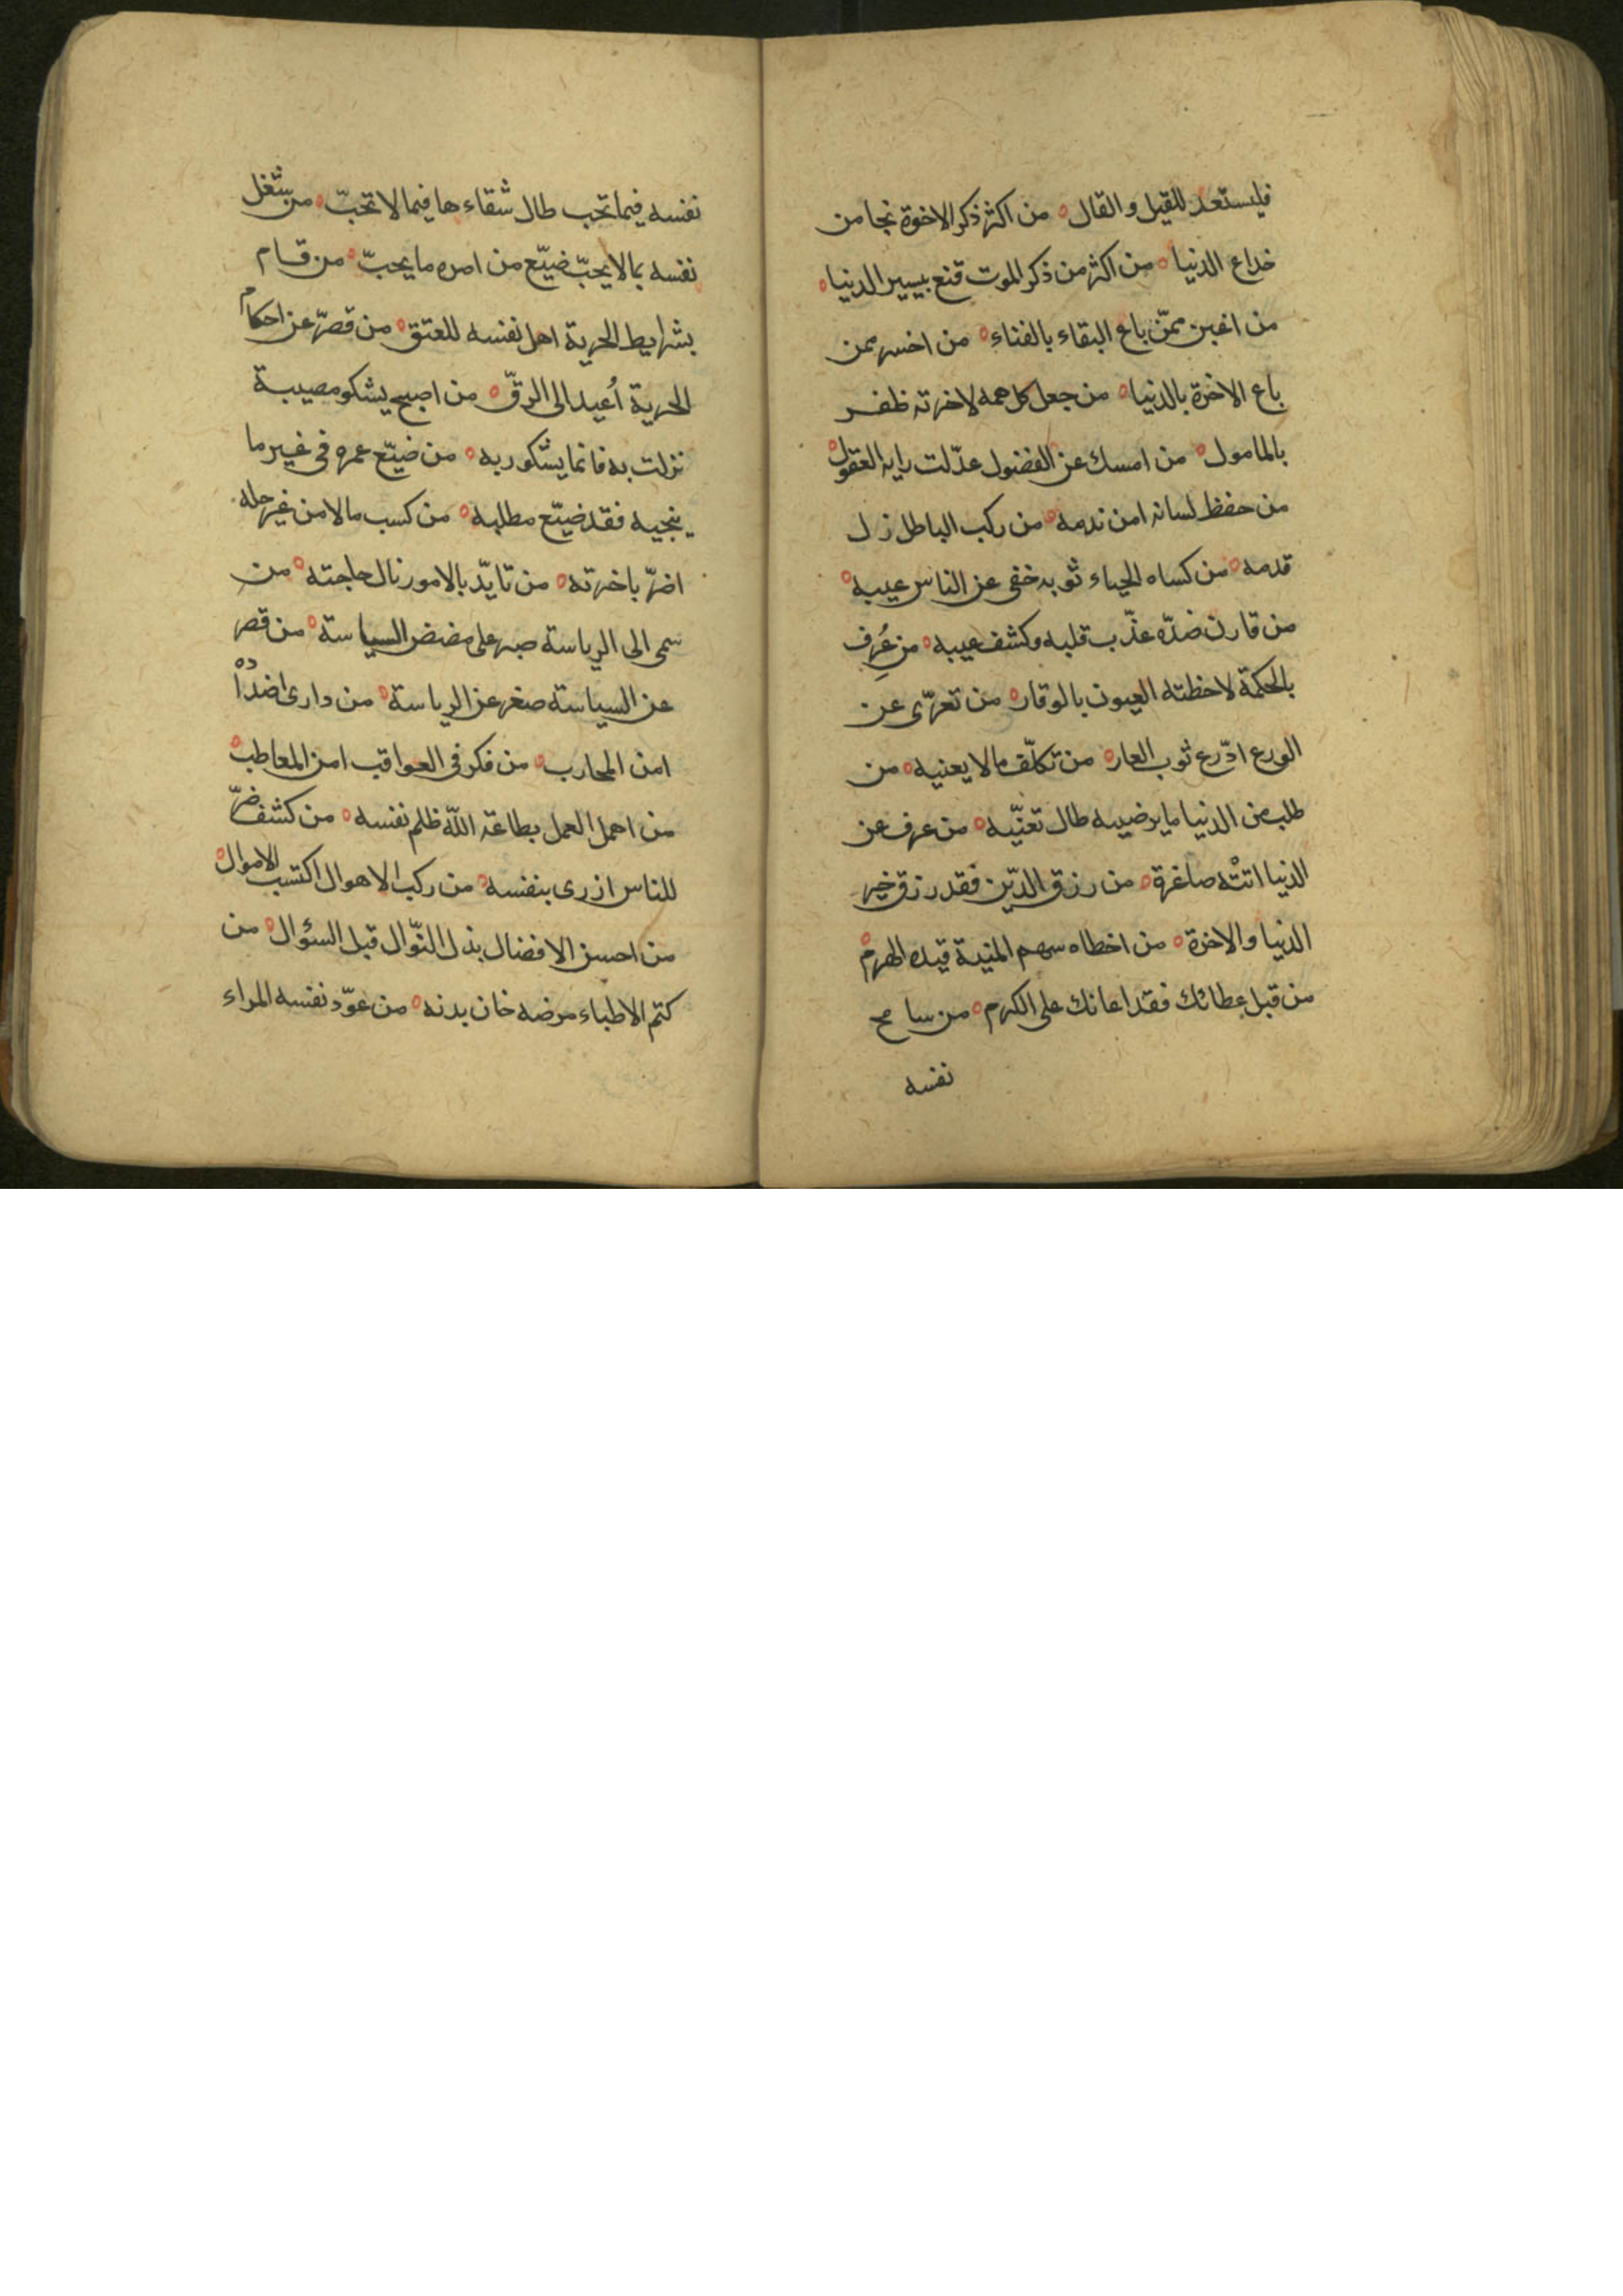 فليستعد للقيل و القال ه من اكثر ذكر الاخوة نجا من
خداع الدنيا ه من اكثر من ذكر الموت قنع بيسير الدنيا ه
من اغبن ممّن باع البقاء بالفناء ه من اخسر ممن
باع الاخرة بالدنيا ه من جعل كل همه لاخرته ظفر
بالمامول ه من امسك عن الفضول عدّلت رايه العقول ه
من حفظ لسانه امن ندمه ه من ركب الباطل زل
قدمه ه من كساه الحياء ثوبه خفى عن الناس عيبه ه
من قارن ضدّه عذّب قلبه وكشف عيبه ه من عُرِف
بالحكمة لاحظته العيون بالوقار ه من تعرّى عن
الورع ادّرع ثوب العار ه من تكلّف مالا يعنيه ه من
طلب من الدنيا ما يرضيه طال تعنّيه ه من عزف عن
الدنيا اتتْه صاغرة ه من رزق الدّين فقد رزق خير
الدنيا والاخرة ه من اخطاه سهم المنية قيده الهرم ه
من قبل عطائك فقد اعانك على الكرم ه من سامح
نفسه
نفسه فيما تحب طال شقاءها فيما لا تحبّ ه من شغل
نفسه بما لا يحبّ ضيّع من امره ما يحبّ ه من قام
بشرايط الحرية اهل نفسه للعتق ه من قصّر عن احكام
الحرية أُعيد الى الرقّ ه من اصبح يشكو مصيبة
نزلت به فانما يشكو ربه ه من ضيّع عمره فى غير ما
ينجيه فقد ضيّع مطلبه ه من كسب مالا من غير حله
اضرّ باخرته ه من تايّد بالامور نال حاجته ه من
سمى الى الرياسة صبر على مضض السياسة ه من قصر
عن السياسة صغر عن الرياسة ه من دارى اضداده
امن المحارب ه من فكر فى العواقب امن المعاطب ه
من اهمل العمل بطاعة اللّه ظلم نفسه ه من كشف ضرّ
للناس ازرى بنفسه ه من ركب الاهوال اكتسب الاموال ه
من احسن الافضال بذل النّوال قبل السؤال ه من
كتم الاطباء مرضه خان بدنه ه من عوّد نفسه المراء